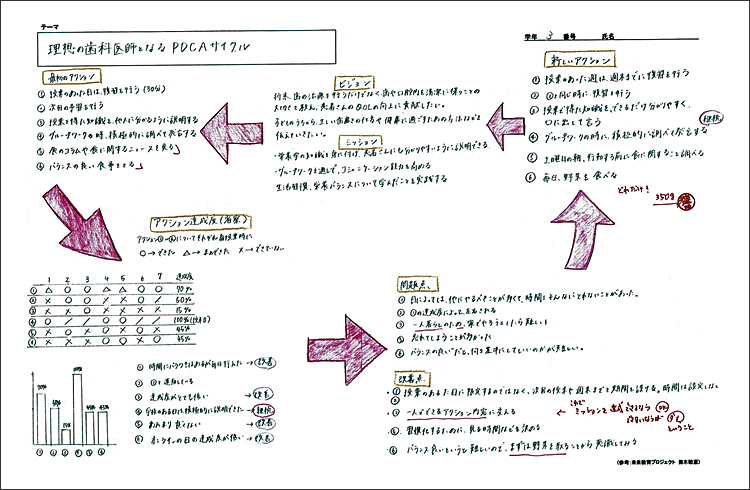 テーマ
理想の歯科医師となる PDCAサイクル
学年 3 番号 氏名
最初のアクション
① 授業のあった日は、復習を行う (30分)
② 次回の予習を行う
③ 授業で得た知識を、他人に分かるように説明する
④ グループワークの時、積極的に調べて発言する
⑤ 食のコラムや食に関するニュースを見る
⑥ バランスの良い食事をとる
ビジョン
将来、歯の治療を行うだけでなく、歯や口腔内を清潔に保つことの
大切さを教え、患者さんのQOLの向上に貢献したい。
伝えていきたい。
ミッション
・栄養学の知識を身に付け、患者さんにも分かりやすいように説明できる
・グループワークを通して、コミュニケーション能力を高める
生活習慣、栄養バランスについて学んだことを実践する
新しいアクション
① 授業のあった週は、週末までに復習を行う
② ①と同時に、予習を行う
③ 授業で得た知識を、できるだけ分かりやすく、
口に出して言う
④ グループワークの時に、積極的に調べて発言する
継続
⑤ 土曜日の朝、行動する前に食に関することを調べる
⑥ 毎日、野菜を食べる
どれだけ?
350g
アクション達成度(考察)
アクション①~⑥についてそれぞれ毎授業時に
○→できた △→まあできた ×→できていない
1 2 3 4 5 6 7 達成度
① △ ○ ○ △ △ ○ ○ 70%
15%
45%
45%
① ② ③ ④ ⑤ ⑥
① 時間にバラつきはあるが毎日行えた → 改善
② ①と連動している
③ 達成度がとても低い → 改善
④ 会話のある日に積極的に説明できた → 継続
⑤ あんまり良くない → 改善
⑥ オンラインの日の達成度が低い → 改善
問題点
① 日によっては、他にやるべきことが多くて、時間をそんなにとれないことがあった。
② ①の達成度によって、左右される
③ 一人暮らしのため、家でやろうとしたら難しい
⑤ 忘れてしまうことが多かった
⑥ バランスの良いだと、何を基準にしてしていいのかが難しい。
改善点
① 授業のあった日に限定するのではなく、次回の授業や週末までと期間を設ける。時間は設定しない
③ 一人でできるアクション内容に変える
← これでミッションを達成できるなら
ということ
⑤ 習慣化するために、見る時間などを決める
⑥ バランス良いというと難しいので、まずは野菜を取ることから意識してみる
(参考:未来教育プロジェクト 鈴木敏恵)